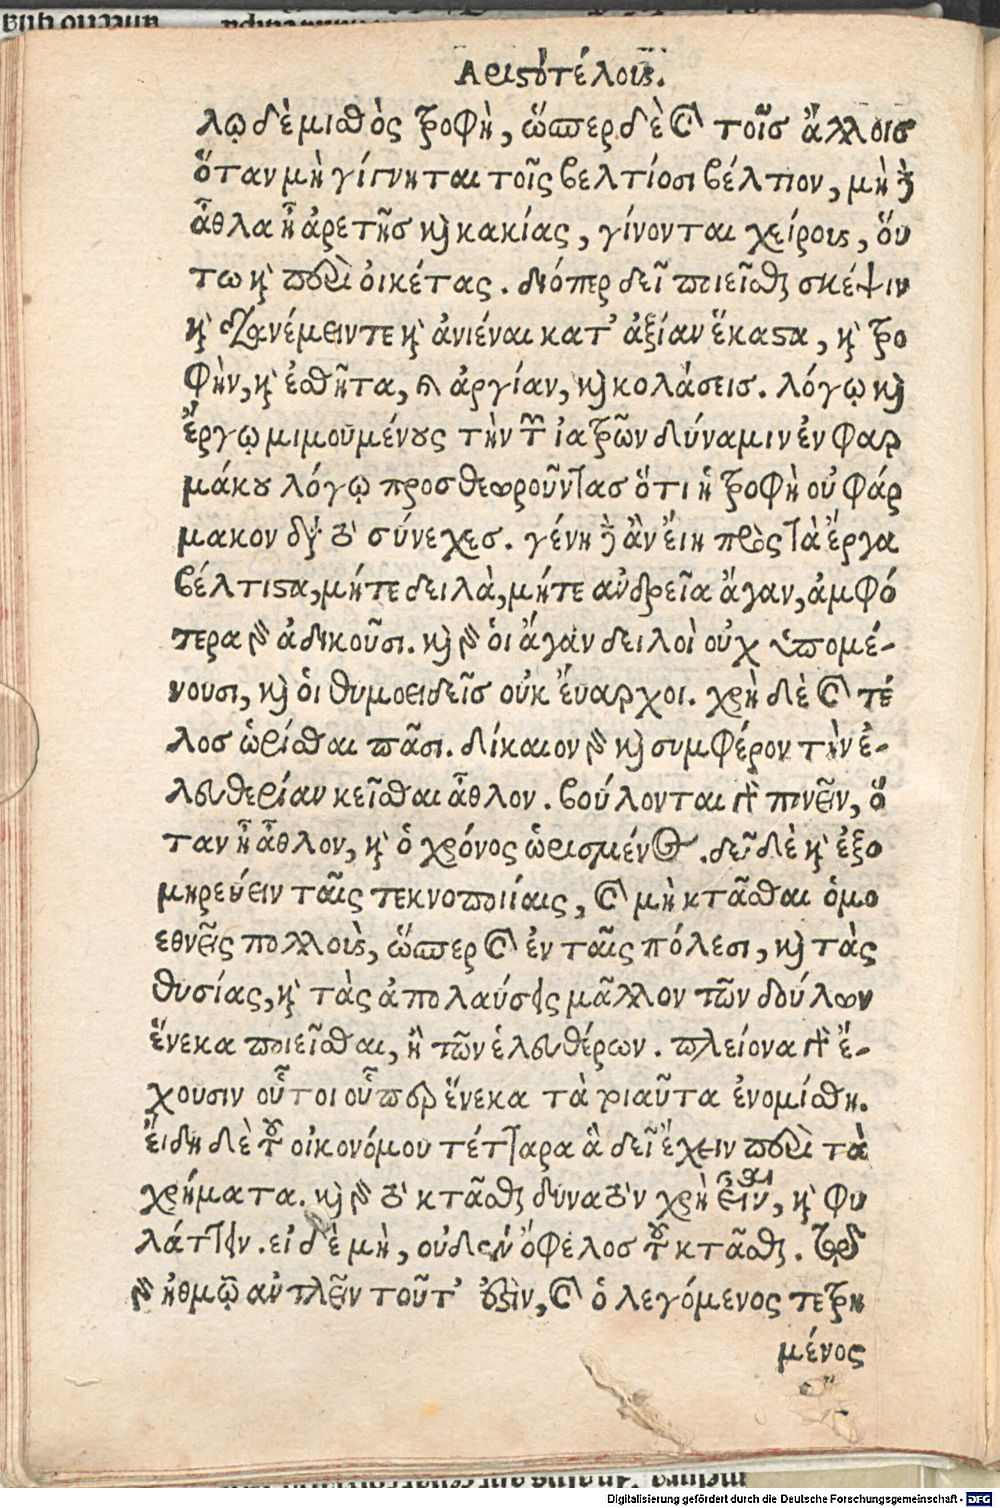 Ἀριστοτέλους.
λῳ δὲ μισθὸς τροφὴ, ὥσπερ δὲ καὶ τοῖς ἄλλοις
ὅταν μὴ γίγνηται τοῖς βελτίοσι βέλτιον, μὴ δὲ
ἆθλα ἦ ἀρετῆς καὶ κακίας, γίνονται χείρους, ὅυ
τω καὶ περὶ ὀικέτας. διόπερ δεῖ ποιεῖσθαι σκέψιν
καὶ διανέμειν τε καὶ ἀνιέναι κατ' ἀξίαν ἕκαστα, καὶ τρο
φὴν, καὶ ἐσθῆτα, καὶ ἀργίαν, καὶ κολάσεις. λόγῳ καὶ
ἔργῳ μιμουμένους τὴν τῶν ἰατρῶν δύναμιν ἐν φαρ
μάκου λόγῳ προσθεωροῦντας ὅτι ἡ τροφὴ οὐ φάρ
μακον διὰ τὸ σύνεχες. γένη δὲ ἂν ἔιη πρὸς τὰ ἔργα
βέλτιστα, μήτε δειλὰ, μήτε ἀνδρεῖα ἄγαν, ἀμφό
τερα γὰρ ἀδικοῦσι. καὶ γὰρ ὁι ἄγαν δειλοὶ οὐχ ὑπομέ-
νουσι, καὶ ὁι θυμοειδεῖς οὐκ ἔυαρχοι. χρὴ δὲ καὶ τέ
λος ὡρίσθαι πᾶσι. δίκαιον γὰρ καὶ συμφέρον τὴν ἐ-
λευθερίαν κεῖσθαι ἆθλον. βούλονται γὰρ πονεῖν, ὅ
ταν ἦ ἆθλον, καὶ ὁ χρόνος ὡρισμένος. δεῖ δὲ καὶ ἐξο
μηρεύειν ταῖς τεκνοποιίαις, καὶ μὴ κτᾶσθαι ὁμο
εθνεῖς πολλοὺς, ὥσπερ καὶ ἐν ταῖς πόλεσι, καὶ τὰς
θυσίας, καὶ τὰς ἀπολαύσεις μᾶλλον τῶν δούλων
ἕνεκα ποιεῖσθαι, ἢ τῶν ἐλευθέρων. πλείονα γὰρ ἔ-
χουσιν οὗτοι οὗπερ ἕνεκα τὰ τοιαῦτα ἐνομίσθη.
ἔιδη δὲ τοῦ οἰκονόμου τέτταρα ἃ δεῖ ἔχειν περὶ τὰ
χρήματα. καὶ γὰρ τὸ κτᾶσθαι δυνατὸν χρὴ εἶναι, καὶ φυ
λάττειν. εἰ δὲ μὴ, οὐδὲν ὄφελος τοῦ κτᾶσθαι. τῷ
γὰρ ἠθμῷ ἀντλεῖν τοῦτ' ἐστὶν, καὶ ὁ λεγόμενος τετρη
μένος
Digitalisierung gefördert durch die Deutsche Forschungsgemeinschaft - DFG